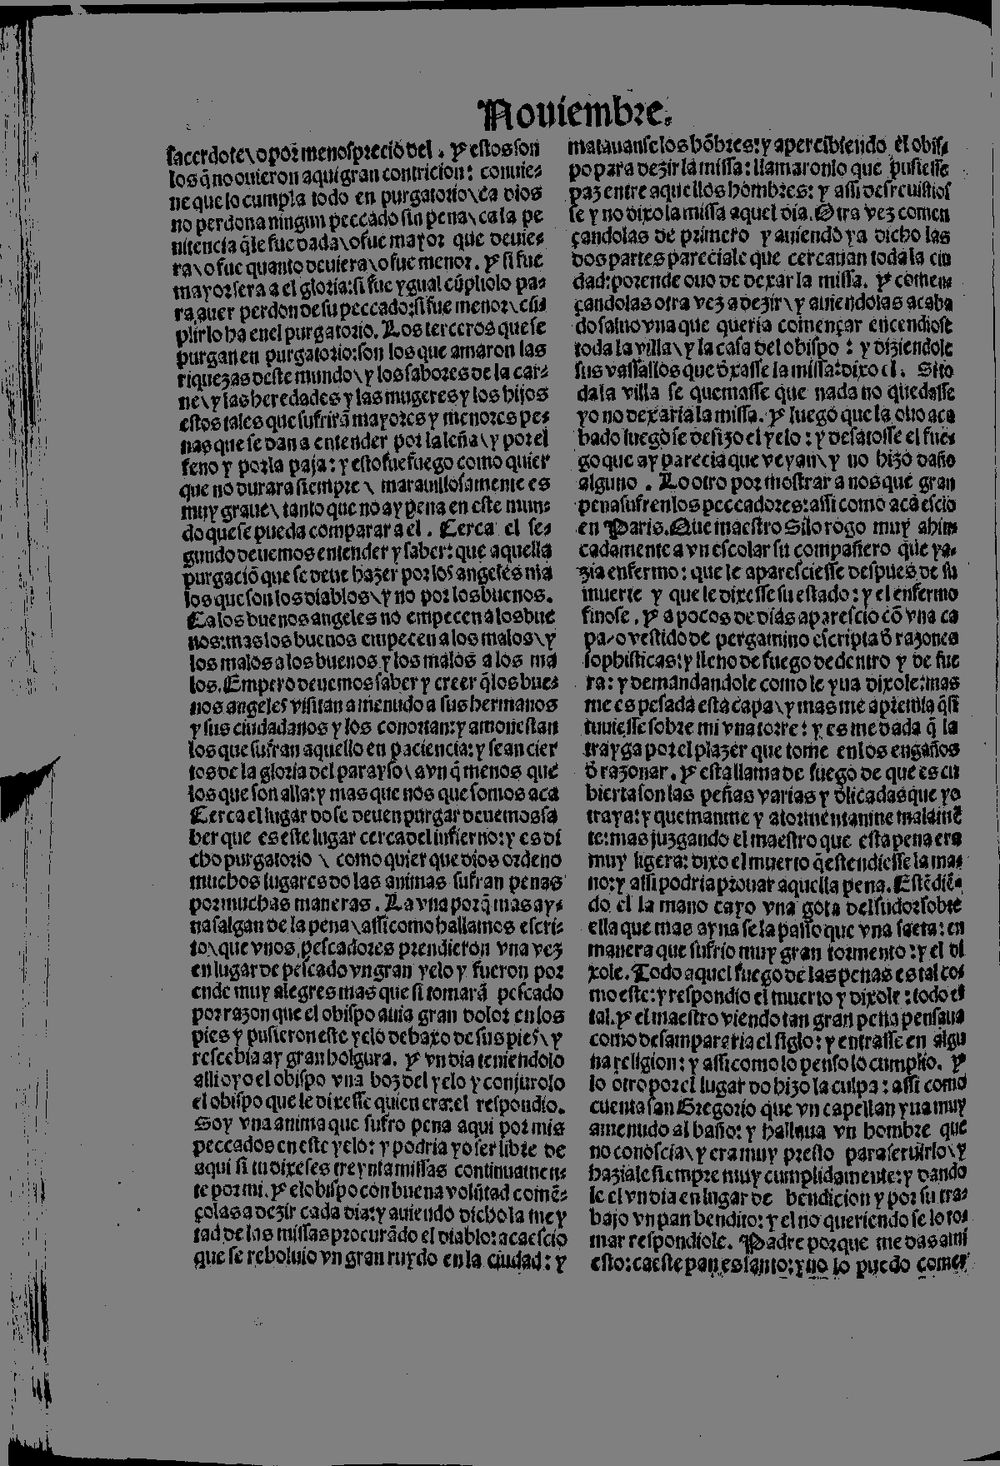 Nouiembre.
sacerdote\o por menospreciõ del. Y estos son
los q̃ no ouieron aqui gran contricion: conuie-
ne que lo cumpla todo en purgatorio\ca dios
no perdona ningun peccado sin pena\ca la pe
nitencia q̃ le fue dada\o fue mayor que deuie-
ra\o fue quanto deuiera\o fue menor. Y si fue
mayor sera a el gloria: si fue ygual cũpliolo pa-
ra auer perdon de su peccado: si fue menor\cũ
plirlo ha enel purgatorio. Los terceros que se
purgan en purgatorio: son los que amaron las
riquezas deste mundo\y los sabores de la car-
ne\y las heredades y las mugeres y los hijos
estos tales que sufrirã mayores y menores pe-
nas que se dan a entender por la leña\y por el
feno y por la paja: y esto fue fuego como quier
que no durara siempre \ marauillosamente es
muy graue\tanto que no ay pena en este mun-
do que se pueda comparar a el. Cerca el se-
gundo deuemos entender y saber: que aquella
purgaciõ que se deue hazer por los angeles ma
los que son los diablos\y no por los buenos.
Ca los buenos angeles no empecen a los bue
nos: mas los buenos empecen a los malos\y
los malos a los buenos y los malos a los ma
los. Empero deuemos saber y creer q̃ los bue-
nos angeles visitan a menudo a sus hermanos
y sus ciudadanos y los conortan: y amonestan
los que sufran aquello en paciencia: y sean cier
tos de la gloria del parayso\avn q̃ menos que
los que son alla: y mas que nos que somos aca
Cerca el lugar do se deuen purgar deuemos sa
ber que es este lugar cerca del infierno: y es di
cho purgatorio \ como quier que dios ordeno
muchos lugares do las animas sufran penas
por muchas maneras. La vna porq̃ mas ay-
na salgan de la pena\assi como hallamos escri-
to\que vnos pescadores prendieron vna vez
en lugar de pescado vn gran yelo y fueron por
ende muy alegres mas que si tomarã pescado
por razon que el obispo auia gran dolor en los
pies y pusieron este yelo debaxo de sus pies\y
rescebia ay gran holgura. Y vn dia teniendolo
alli oyo el obispo vna boz del yelo y conjurolo
el obispo que le dixesse quien era: el respondio.
Soy vna anima que sufro pena aqui por mis
peccados en este yelo: y podria yo ser libre de
aqui si tu dixeses treynta missas continuamen-
te por mi. Y el obispo con buena volũtad comẽ-
çolas a dezir cada dia: y auiendo dicho la mey
tad de las missas procurãdo el diablo: acaescio
que se reboluio vn gran ruydo en la ciudad: y
matauanse los hõbres: y apercibiendo el obis-
po para dezir la missa: llamaronlo que pusiesse
paz entre aquellos hombres: y assi desreuistios
se y no dixo la missa aquel dia. Otra vez comen
çandolas de primero y auiendo ya dicho las
dos partes pareciale que cercauan toda la ciu
dad: porende ouo de dexar la missa. Y comen-
çandolas otra vez a dezir\y auiendolas acaba
do saluo vna que queria començar encendiose
toda la villa\y la casa del obispo: y diziendole
sus vassallos que dxasse la missa: dixo el. Si to
da la villa se quemasse que nada no quedasse
yo no dexaria la missa. Y luego que la ouo aca
bado luego se desfizo el yelo: y desatosse el fue-
go que ay parecia que veyan\y no hizo daño
alguno. Lo otro por mostrar a nos que gran
pena sufren los peccadores: assi como acaescio
en Paris. Que maestro Silo rogo muy ahin
cadamente a vn escolar su compañero que ya-
zia enfermo: que le aparesciesse despues de su
muerte y que le dixesse su estado: y el enfermo
finose. Y a pocos de dias aparescio cõ vna ca
pa\o vestido de pergamino escripta d razones
sophisticas: y lleno de fuego de dentro y de fue
ra: y demandandole como le yua dixole: mas
me es pesada esta capa\y mas me apremia q̃ si
tuuiesse sobre mi vna torre: y es me dada q̃ la
trayga por el plazer que tome en los engaños
d razonar. Y esta llama de fuego de que es cu
bierta son las peñas varias y dlicadas que yo
traya: y queman me y atormentan me malamẽ
te: mas juzgando el maestro que esta pena era
muy ligera: dixo el muerto q̃ estendiesse la ma-
no: y assi podria prouar aquella pena. Estẽdiẽ-
do el la mano cayo vna gota del sudor sobre
ella que mas ayna se la passo que vna saeta: en
manera que sufrio muy gran tormento: y el di
xole. Todo aquel fuego de las penas es tal co-
mo este: y respondio el muerto y dixole: todo es
tal. Y el maestro viendo tan gran pena pensaua
como desampararia el siglo: y entrasse en algu
na religion: y assi como lo penso lo cumplio. Y
lo otro por el lugar do hizo la culpa: assi como
cuenta san Gregorio que vn capellan yua muy
amenudo al baño: y hallaua vn hombre que
no conoscia\y era muy presto para seruirlo\y
haziale siempre muy cumplidamente: y dando
le el vn dia en lugar de bendicion y por su tra-
bajo vn pan bendito: y el no queriendo se lo to-
mar respondiole. Padre porque me das a mi
esto: ca este pan es santo: y no lo puedo comer